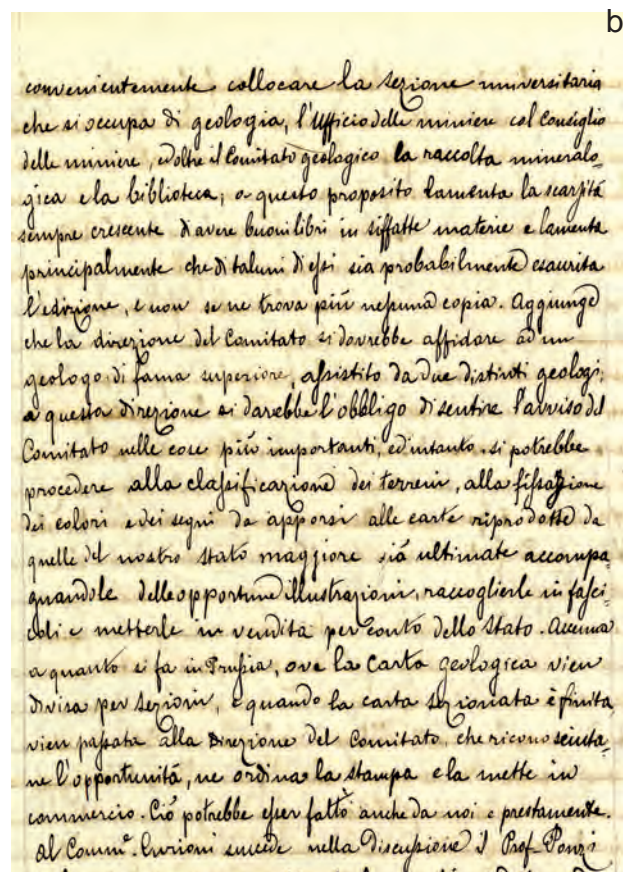 b
convenientemente collocare la sezione universitaria
che si occupa di geologia, l'Ufficio delle miniere col Consiglio
delle miniere, ed oltre il Comitato geologico la raccolta mineralo-
gica e la biblioteca; a questo proposito lamenta la scarsità
sempre crescente di avere buoni libri in siffatte materie e lamenta
principalmente che di taluni di essi sia probabilmente esaurita
l'edizione, e non se ne trova più nessuna copia. Aggiunge
che la direzione del Comitato si dovrebbe affidare ad un
geologo di fama superiore, assistito da due distinti geologi;
a questa direzione si darebbe l'obbligo di sentire l'avviso del
Comitato nelle cose più importanti, ed intanto si potrebbe
procedere alla classificazione dei terreni, alla fissazione
dei colori e dei segni da apporsi alle carte riprodotte da
quelle del nostro stato maggiore già ultimate accompa-
gnandole delle opportune illustrazioni, raccoglierle in fasci-
coli e metterle in vendita per conto dello Stato. Accenna
a quanto si fa in Prussia, ove la Carta geologica vien
divisa per sezioni, e quando la carta sezionata è finita,
vien passata alla Direzione del Comitato, che riconosciuta-
ne l'opportunità, ne ordina la stampa e la mette in
commercio. Ciò potrebbe esser fatto anche da noi e prestamente.
Al Comm.e Curioni succede nella Discussione il Prof. Ponzi